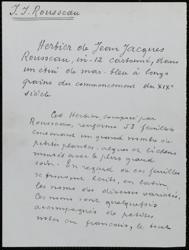 J. J. Rousseau
Herbier de Jean Jacques
Rousseau, in-12 cartonné, dans
un étui de mar. bleu à long
grains du commencement du XIXe
siècle
Cet Herbier composé par
Rousseau, renferme 53 feuillets
contenant un grand nombre de
petites plantes, algues et lichens
avec le plus grand
soin. En regard de ces feuillets
se trouvent écrits, en latin
les noms des diverses variétés,
ces noms sont quelquefois
accompagnés de petites
notes en français, le tout